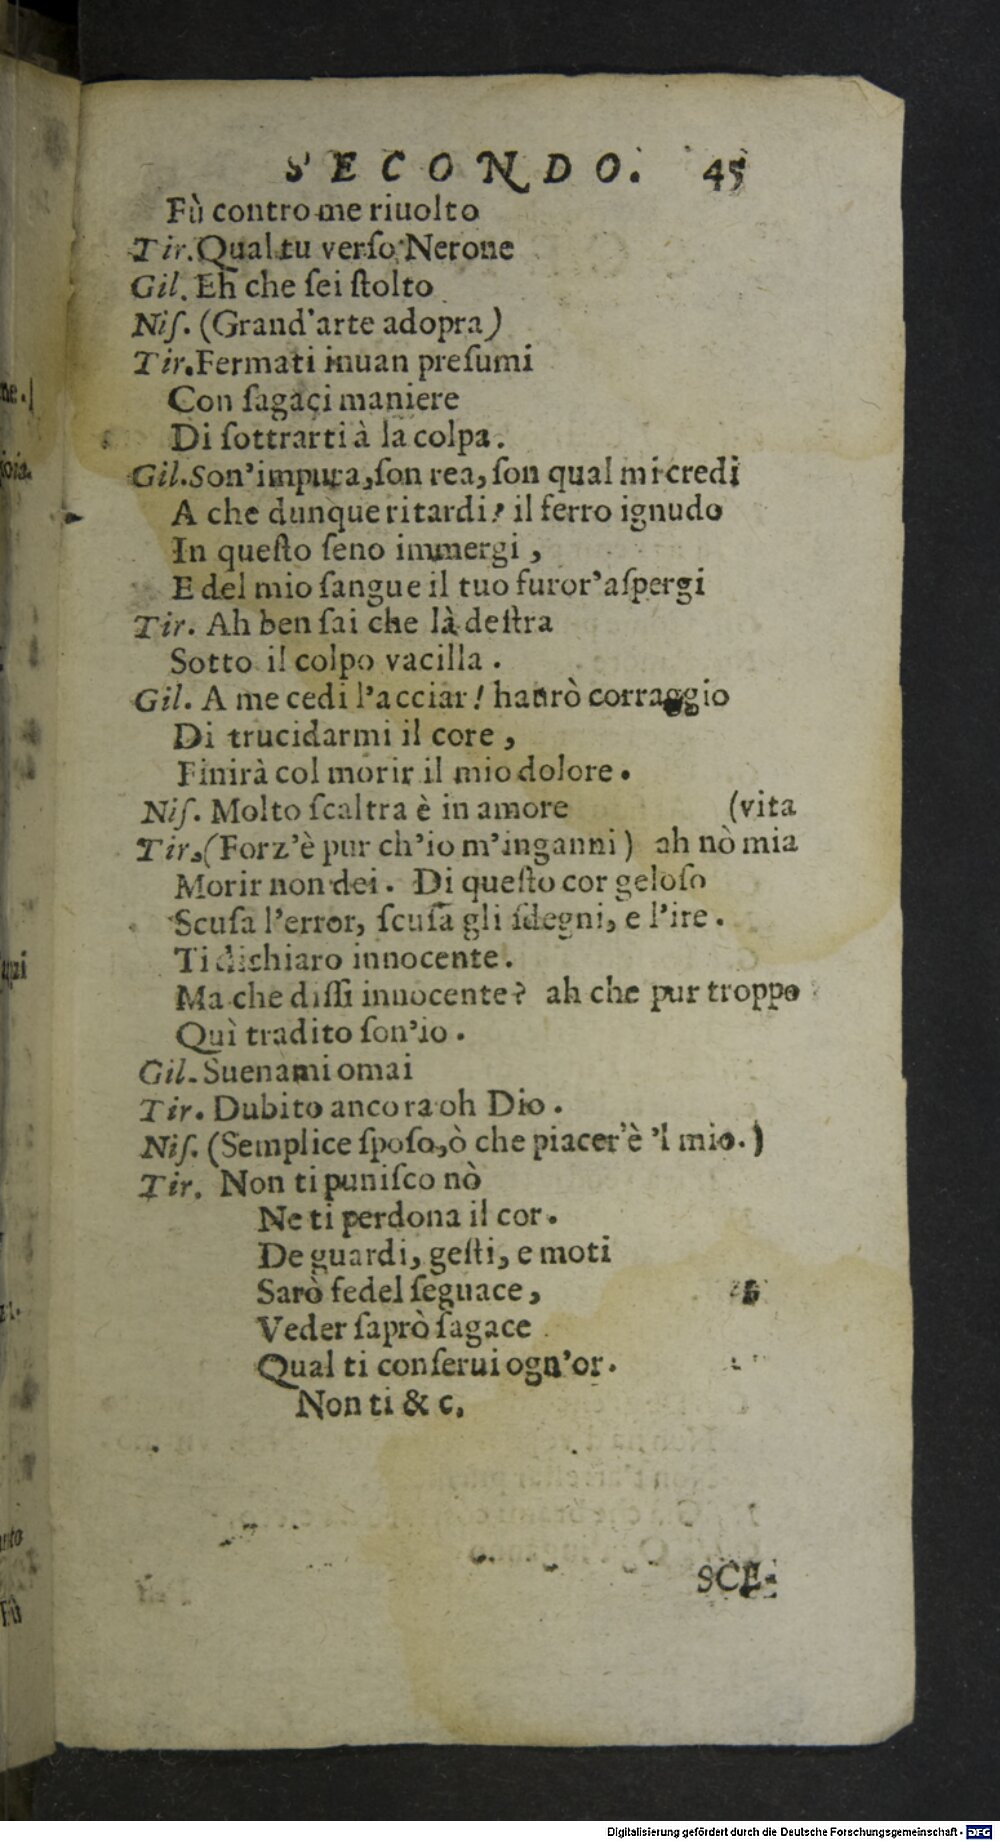 SECONDO. 45
Fù contro me riuolto
Tir. Qual tu verſo Nerone
Gil. Eh che ſei ſtolto
Niſ. (Grand'arte adopra)
Tir. Fermati inuan preſumi
Con ſagaci maniere
Di ſottrarti à la colpa.
Gil. Son'impura, ſon rea, ſon qual mi credi
A che dunque ritardi? il ferro ignudo
In queſto ſeno immergi,
E del mio ſangue il tuo furor'aſpergi
Tir. Ah ben ſai che là deſtra
Sotto il colpo vacilla.
Gil. A me cedi l'acciar! haurò corraggio
Di trucidarmi il core,
Finirà col morir il mio dolore.
Niſ. Molto ſcaltra è in amore (vita
Tir. (Forz'è pur ch'io m'inganni) ah nò mia
Morir non dei. Di queſto cor geloſo
Scuſa l'error, ſcuſa gli ſdegni, e l'ire.
Ti dichiaro innocente.
Ma che diſſi innocente? ah che pur troppo
Quì tradito ſon'io.
Gil. Suenami omai
Tir. Dubito ancora oh Dio.
Niſ. (Semplice ſpoſo, ò che piacer'è 'l mio.)
Tir. Non ti puniſco nò
Ne ti perdona il cor.
De guardi, geſti, e moti
Sarò fedel ſeguace,
Veder ſaprò ſagace
Qual ti conſerui ogn'or.
Non ti & c.
SCE-
Digitalisierung gefördert durch die Deutsche Forschungsgemeinschaft - DFG